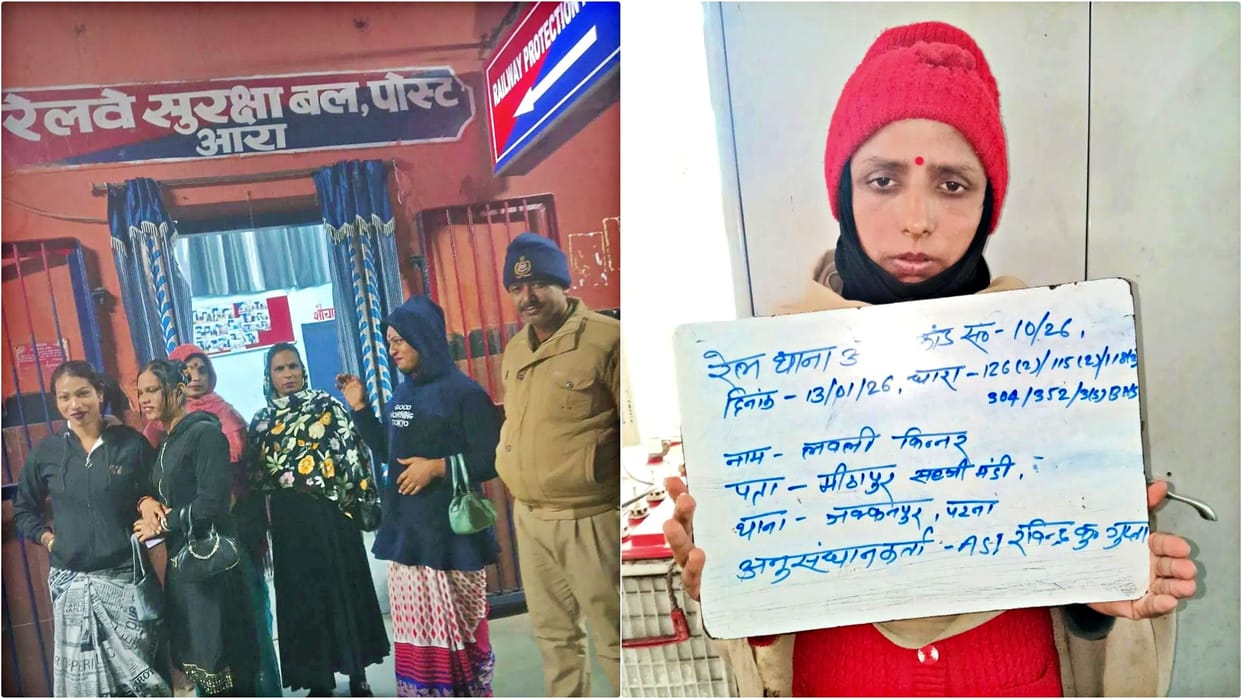 रेलवे सुरक्षा बल, पोस्ट
आरा
RAILWAY PROTECTION
शौचा
GOOD
MORNING
TOKYO
रेल थाना कांड सं०- 10/26,
दिनांक - 13/01/26, धारा - 126(2)/115(2)/118(2)
304/352/3(5) BNS
नाम - लवली किन्नर
पता - मीठापुर सब्जी मंडी,
थाना - जक्कनपुर, पटना
अनुसंधानकर्ता - ASI रविन्द्र कु० गुप्ता